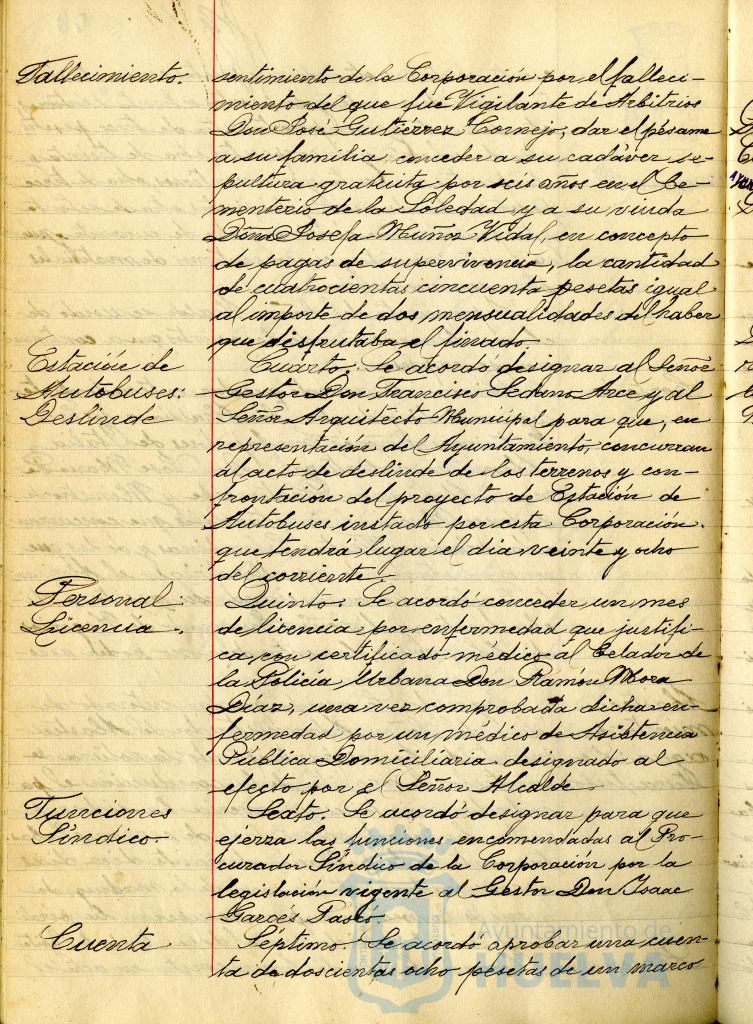 Fallecimiento.
sentimiento de la Corporación por el falleci-
miento del que fué Vigilante de Arbitrios
Don José Gutiérrez Cornejo, dar el pésame
a su familia conceder a su cadáver se-
pultura gratuita por seis años en el Ce-
menterio de la Soledad y a su viuda
Doña Josefa Muñoz Vidal, en concepto
de pagas de supervivencia, la cantidad
de cuatrocientas cincuenta pesetas igual
al importe de dos mensualidades del haber
que disfrutaba el finado.
Estación de
Autobuses:
Deslinde
Cuarto. Se acordó designar al Señor
Gestor Don Francisco Seduno Arce y al
Señor Arquitecto Municipal para que, en
representación del Ayuntamiento, concurran
al acto de deslinde de los terrenos y con-
frontación del proyecto de Estación de
Autobuses instado por esta Corporación
que tendrá lugar el dia veinte y ocho
del corriente.
Personal:
Licencia.
Quinto. Se acordó conceder un mes
de licencia por enfermedad que justifi-
ca con certificado médico al Celador de
la Policia Urbana Don Ramón Mora
Diaz, una vez comprobada dicha en-
fermedad por un médico de Asistencia
Pública Domiciliaria designado al
efecto por el Señor Alcalde.
Funciones
Síndico.
Sexto. Se acordó designar para que
ejerza las funciones encomendadas al Pro-
curador Síndico de la Corporación por la
legislación vigente al Gestor Don Isaac
Garcés Pasco.
Cuenta
Séptimo. Se acordó aprobar una cuen-
ta de doscientas ocho pesetas de un marco
Ayuntamiento de
HUELVA